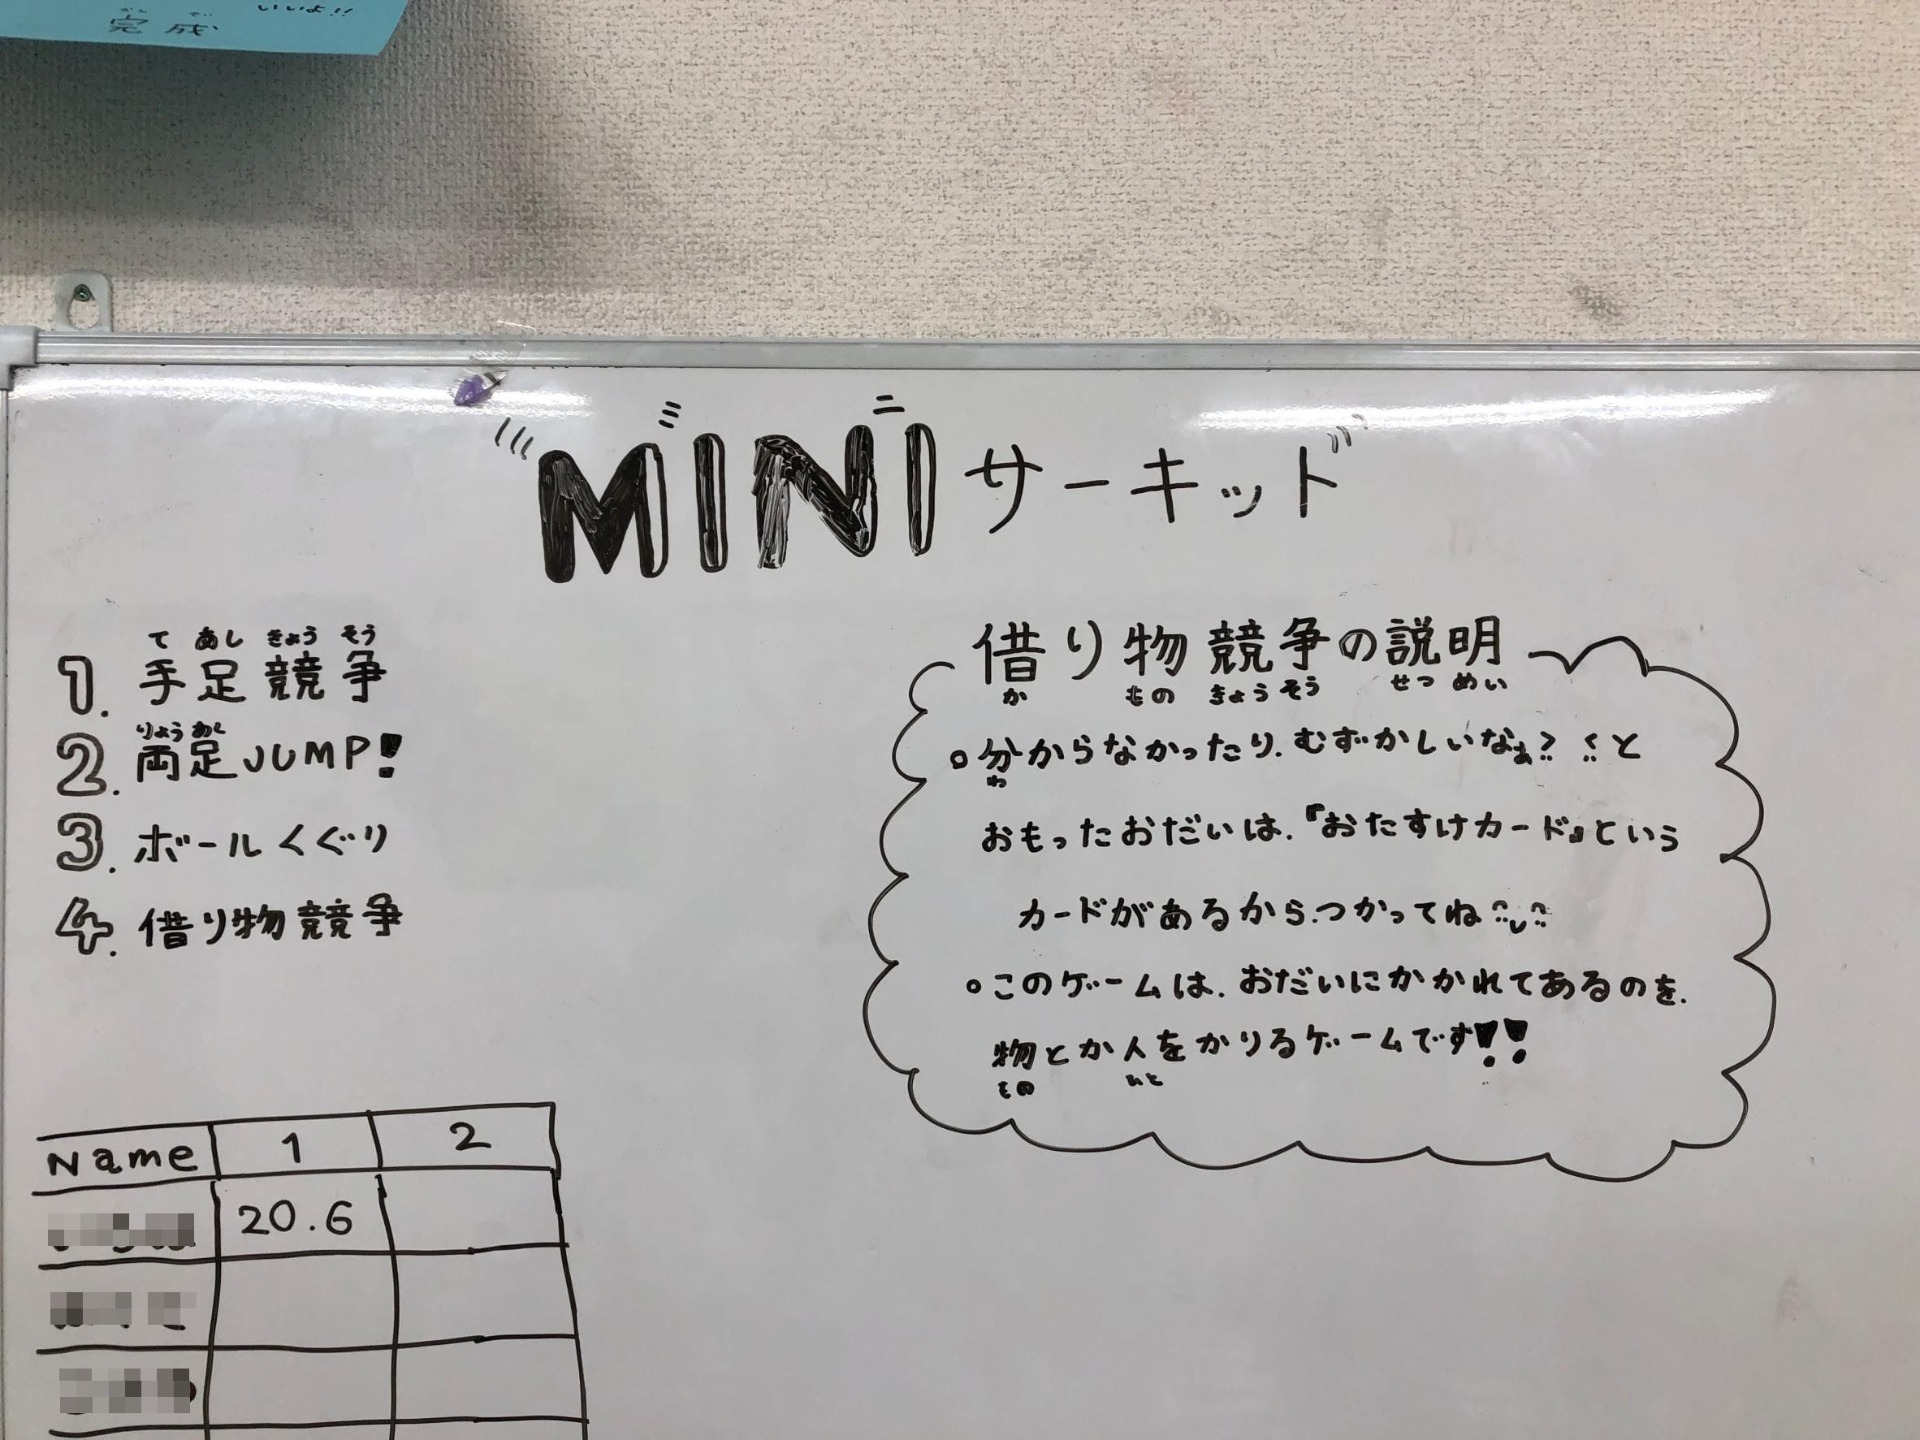 いいよ!!
完成
MINIサーキット
て あし きょう そう
1. 手足競争
りょう あし
2. 両足JUMP!
3. ボールくぐり
4. 借り物競争
借り物競争の説明
か もの きょう そう せつ めい
。分からなかったり.むずかしいなぁ? と
わ
おもったおだいは.『おたすけカード』という
カードがあるから.つかってね
。このゲームは.おだいにかかれてあるのを.
物とか人をかりるゲームです!!
もの ひと
Name 1 2
20.6